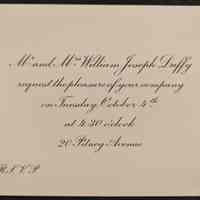 Mr and Mrs William Joseph Duffy
request the pleasure of your company
on Tuesday October 4th
at 4:30 o'clock
20 Pitney Avenue
R.S.V.P.